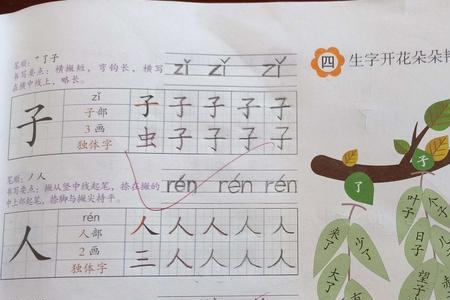 笔顺：㇇了子
书写要点：横撇短，弯钩长，横写
在横中线上，略长。
zǐ zǐ zǐ
子
zǐ
子部
3画
独体字
子 子 子 子 子
虫 子 子 子 子
笔顺：丿人
书写要点：撇从竖中线起笔，捺在撇的
中上部起笔，捺脚与撇尖持平。
rén rén rén
人
rén
人部
2画
独体字
人 人 人 人 人
三 人 人 人 人
四 生字开花朵朵
了
来了
少了
大了
子
叶子
个子
日子
儿
望子